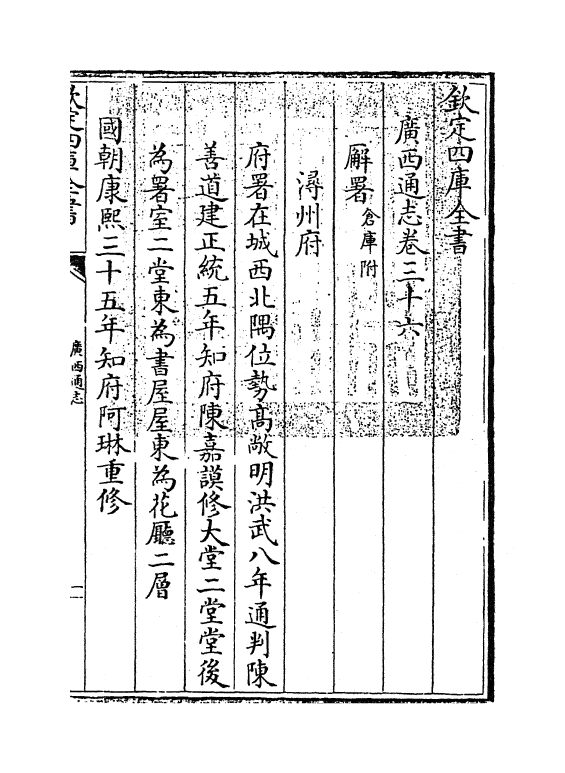 欽定四庫全書
廣西通志卷三十六
廨署倉庫附
潯州府
府署在城西北隅位勢髙敞明洪武八年通判陳
善道建正統五年知府陳嘉謨修大堂二堂堂後
為署室二堂東為書屋屋東為花廳二層
國朝康熙三十五年知府阿琳重修
欽定四庫全書
廣西通志